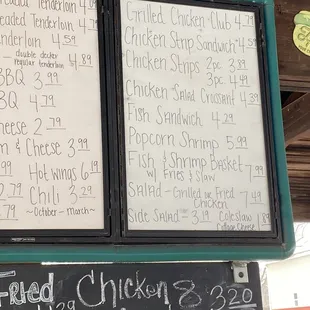 Breaded Tenderloin
Tenderloin 4.79
Tenderloin 4.59
- double decker
regular tenderloin - 4.89
BBQ 3.99
BBQ 4.79
Cheese 2.79
& Cheese 3.99
Hot wings 6.19
Chili 3.29
-October - March-
Grilled Chicken Club 4.79
Chicken Strip Sandwich 4.59
Chicken Strips 2pc. 3.89
3pc. 4.49
Chicken Salad Croissant 4.39
Fish Sandwich 4.29
Popcorn Shrimp 5.99
Fish & Shrimp Basket
w/ Fries & Slaw 7.99
Salad - Grilled or Fried 7.49
Chicken
Side Salad - 3.19 Coleslaw 1.89
Cottage Cheese
Fried Chicken 8 3.20